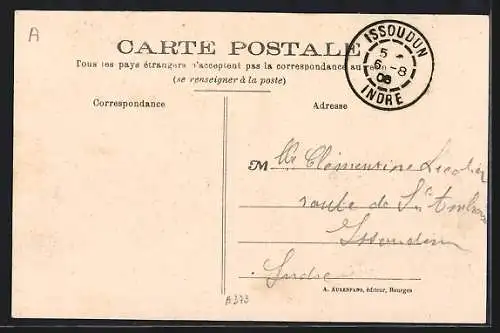 A
CARTE POSTALE
Tous les pays étrangers n'acceptent pas la correspondance au
(se renseigner à la poste)
ISSOUDUN
5
6 -8
08
INDRE
Correspondance
Adresse
M Clémentine
route de St
Issoudun
Indre
A. AUXENFANS, éditeur, Bourges
A373